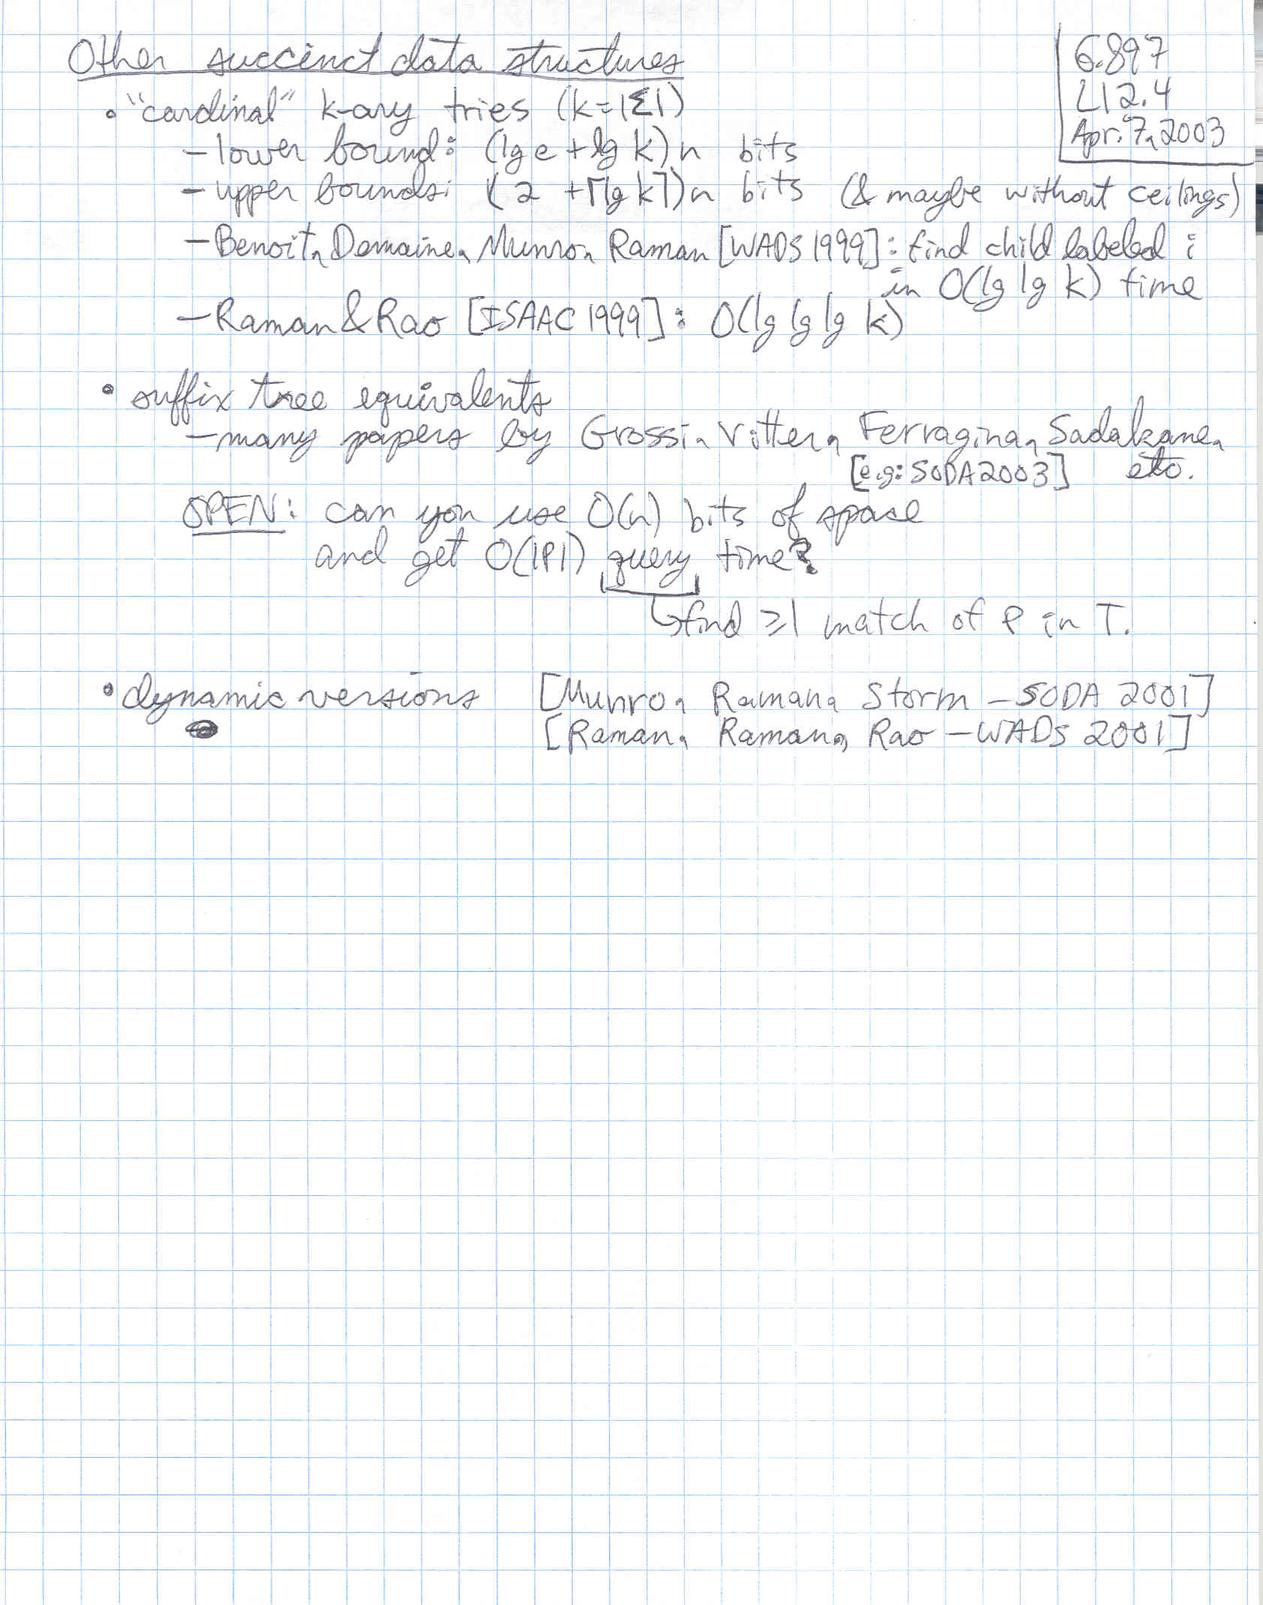 Other succinct data structures
6.897
L12.4
Apr. 7, 2003
• "cardinal" k-ary tries (k=|Σ|)
– lower bound: (lg e + lg k) n bits
– upper bounds: (2 + ⌈lg k⌉) n bits (& maybe without ceilings)
– Benoit, Demaine, Munro, Raman [WADS 1999]: find child labeled i
in O(lg lg k) time
– Raman & Rao [ISAAC 1999]: O(lg lg lg k)
• suffix tree equivalents
– many papers by Grossi, Vitter, Ferragina, Sadakane,
[e.g: SODA 2003] etc.
OPEN: can you use O(n) bits of space
and get O(|P|) query time?
↳ find ≥1 match of P in T.
• dynamic versions [Munro, Raman, Storm – SODA 2001]
[Raman, Raman, Rao – WADS 2001]